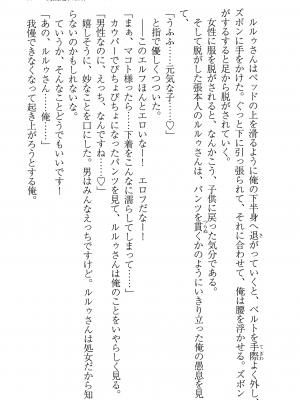 ルルゥさんはベッドの上を滑るように俺の下半身へ退がっていくと、ベルトを手際よく外し、
ズボンに手をかけた。ぐっと下に引っ張られて、それに合わせて、俺は腰を浮かせる。ズボン
がするすると足から脱がされていく。
女性に服を脱がされると、なんかこう、子供に戻った気分である。
そして脱がした張本人のルルゥさんは、パンツを貫くかのようにいきり立った俺の愚息を見
「うふふ……元気な子……♡」
と指で優しくつついた。
――このエルフほんとエロいな！　エロフだなー！
「まぁ、マコト様ったら……下着をこんなに濡らしてしまって……」
カウパーでぴちょぴちょになったパンツを見て、ルルゥさんは俺のことをいやらしく見る。
「男性なのに、えっち、なんですね……♡」
嬉しそうに、妙なことを口にした。男はみんなえっちですけど。ルルゥさんは処女だから知
らないのかもしれない。
ていうか、そんなことどうでもいいです！
「あの、ルルゥさん……俺……」
我慢できなくなって起き上がろうとする俺。